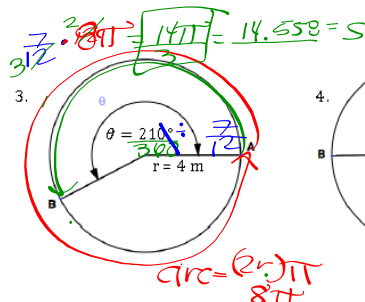 7/12 · 8π = 14π/3 = 14.658 = S
3.
4.
θ
θ = 210° ÷
360
7/12
A
r = 4 m
B
B
arc = (2r)π
8π